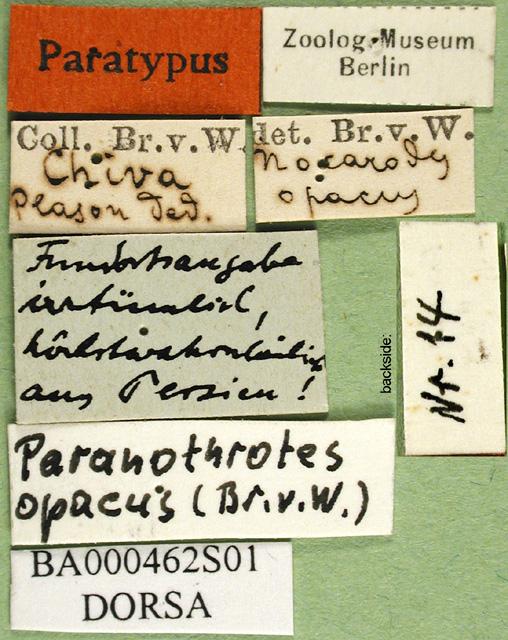 Paratypus
Zoolog. Museum
Berlin
Coll. Br.v.W.
Chiva
Plason ded.
det. Br.v.W.
Nocarodes
opacus
Fundortsangabe
irrtümlich,
höchstwahrscheinlich
aus Persien!
backside:
Nr. 14
Paranothrotes
opacus (Br.v.W.)
BA000462S01
DORSA